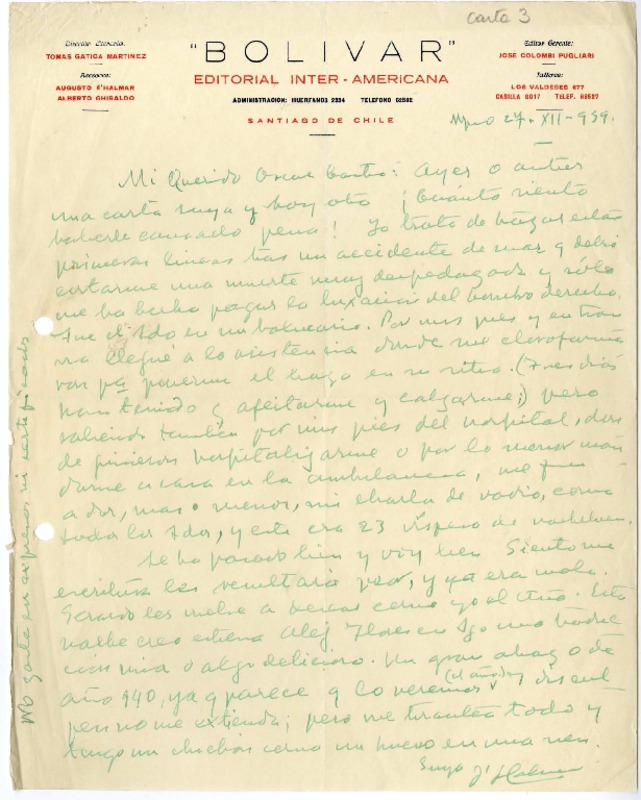 Carta 3
Director Literario:
TOMAS GATICA MARTINEZ
Asesores:
AUGUSTO D'HALMAR
ALBERTO GHIRALDO
"BOLIVAR"
EDITORIAL INTER-AMERICANA
ADMINISTRACION: HUERFANOS 2334 TELEFONO 62582
SANTIAGO DE CHILE
Editor Gerente:
JOSE COLOMBI PUGLIARI
Talleres:
LOS VALDESES 677
CASILLA 6017 TELEF. 68527
27-XII-939.
Mi Querido Oscar Castro: Ayer o antier
una carta suya y hoy otra ¡Cuánto siento
haberle causado pena! Yo trato de trazar estas
primeras líneas tras un accidente de mar q debió
costarme una muerte muy despedazada y sólo
me ha hecho pagar la luxación del hombro derecho.
Fue el sdo en un balneario. Por mis pies y en tran
vía llegué a la asistencia donde me cloroforma
ron pa ponerme el brazo en su sitio. (Tres días
han tenido q afeitarme y calzarme;) pero
saliendo también por mis pies del hospital, don
de quisieron hospitalizarme o por lo menos man
darme a casa en la ambulancia, me fui
a dar, mas o menos, mi charla de radio, como
todos los sdos, y este era 23 víspera de nochebuena.
Se ha pasado bien y voy bien Siento me
escritura les resultaría peor, y ya era mala.
Gerardo les vuelve a besar como yo al Niño. Esta
noche creo estrena Alej Flores en Sgo una traduc
ción mía o algo delicioso. Un gran abrazo de
año 940, ya q parece q lo veremos (el año) y discul
pen no me extienda; pero me tirantea todo y
tengo un chichón como un huevo en una sien.
Suyo d'Halmar
No gaste en expresos, ni certificados